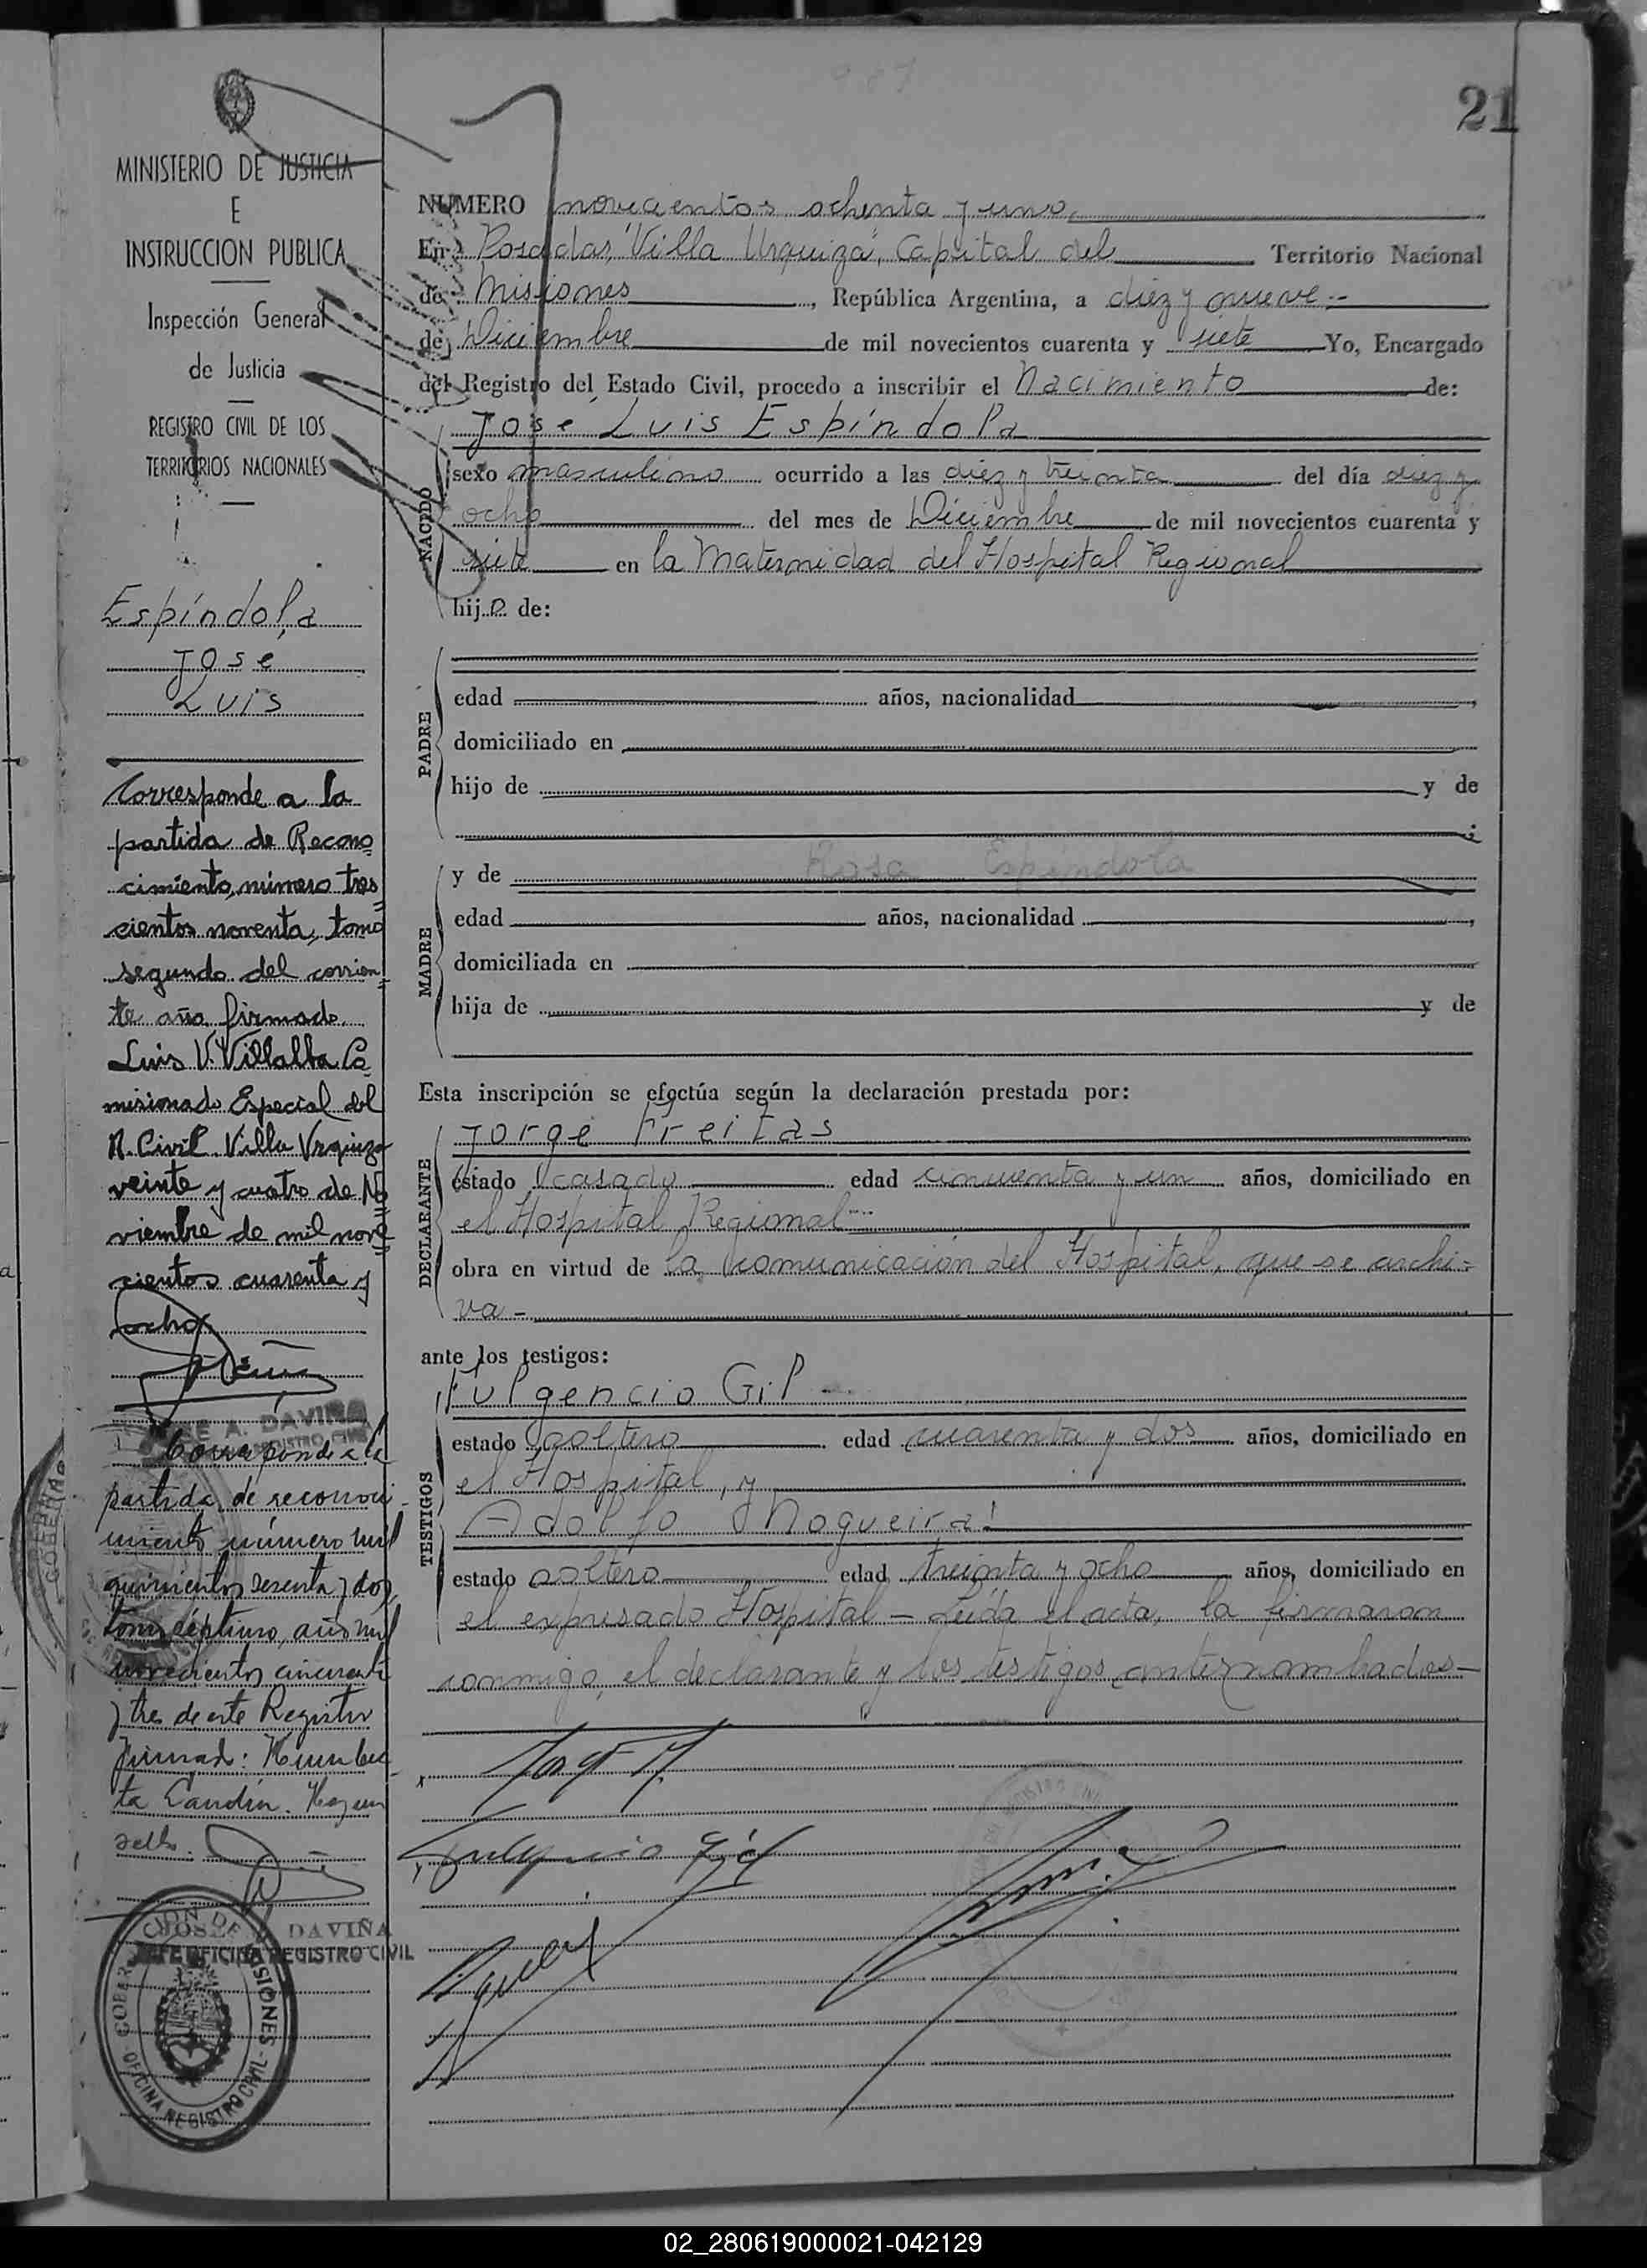 987
21
MINISTERIO DE JUSTICIA
E
INSTRUCCION PUBLICA
Inspección General
de Justicia
REGISTRO CIVIL DE LOS
TERRITORIOS NACIONALES
Espíndola
José
Luis
Corresponde a la
partida de Recono
cimiento, número tres
cientos noventa, tomo
segundo del corrien
te año firmado
Luis V. Villalba Co
misionado Especial del
R. Civil Villa Urquiza
veinte y cuatro de No
viembre de mil nove
cientos cuarenta y
ocho
JOSE A. DAVIÑA
Corresponde a la
partida de reconoci
miento número mil
quinientos sesenta y dos
tomo séptimo, año mil
novecientos cincuenta
y tres de este Registro
firmado: Humber
ta Landin. Hay un
sello.
JOSE DAVIÑA
JEFE OFICINA REGISTRO CIVIL
GOBERNACION DE MISIONES
OFICINA REGISTRO CIVIL
NUMERO novecientos ochenta y uno
En Posadas, "Villa Urquiza", Capital del Territorio Nacional
de Misiones, República Argentina, a diez y nueve
de Diciembre de mil novecientos cuarenta y siete Yo, Encargado
del Registro del Estado Civil, procedo a inscribir el Nacimiento de:
José Luis Espíndola
NACIDO
sexo masculino ocurrido a las diez y treinta del día diez y
ocho del mes de Diciembre de mil novecientos cuarenta y
siete en la Maternidad del Hospital Regional
hijo de:
PADRE
edad años, nacionalidad ,
domiciliado en
hijo de y de
;
MADRE
y de Rosa Espindola
edad años, nacionalidad ,
domiciliada en
hija de y de
Esta inscripción se efectúa según la declaración prestada por:
DECLARANTE
Jorge Freitas
estado casado edad cincuenta y un años, domiciliado en
el Hospital Regional
obra en virtud de la comunicación del Hospital, que se archi-
va -
ante los testigos:
TESTIGOS
Fulgencio Gil
estado soltero edad cuarenta y dos años, domiciliado en
el Hospital, y
Adolfo Nogueira
estado soltero edad treinta y ocho años, domiciliado en
el expresado Hospital - Leída el acta, la firmaron
conmigo, el declarante y los testigos antenombrados -
Fulgencio Gil
02_280619000021-042129